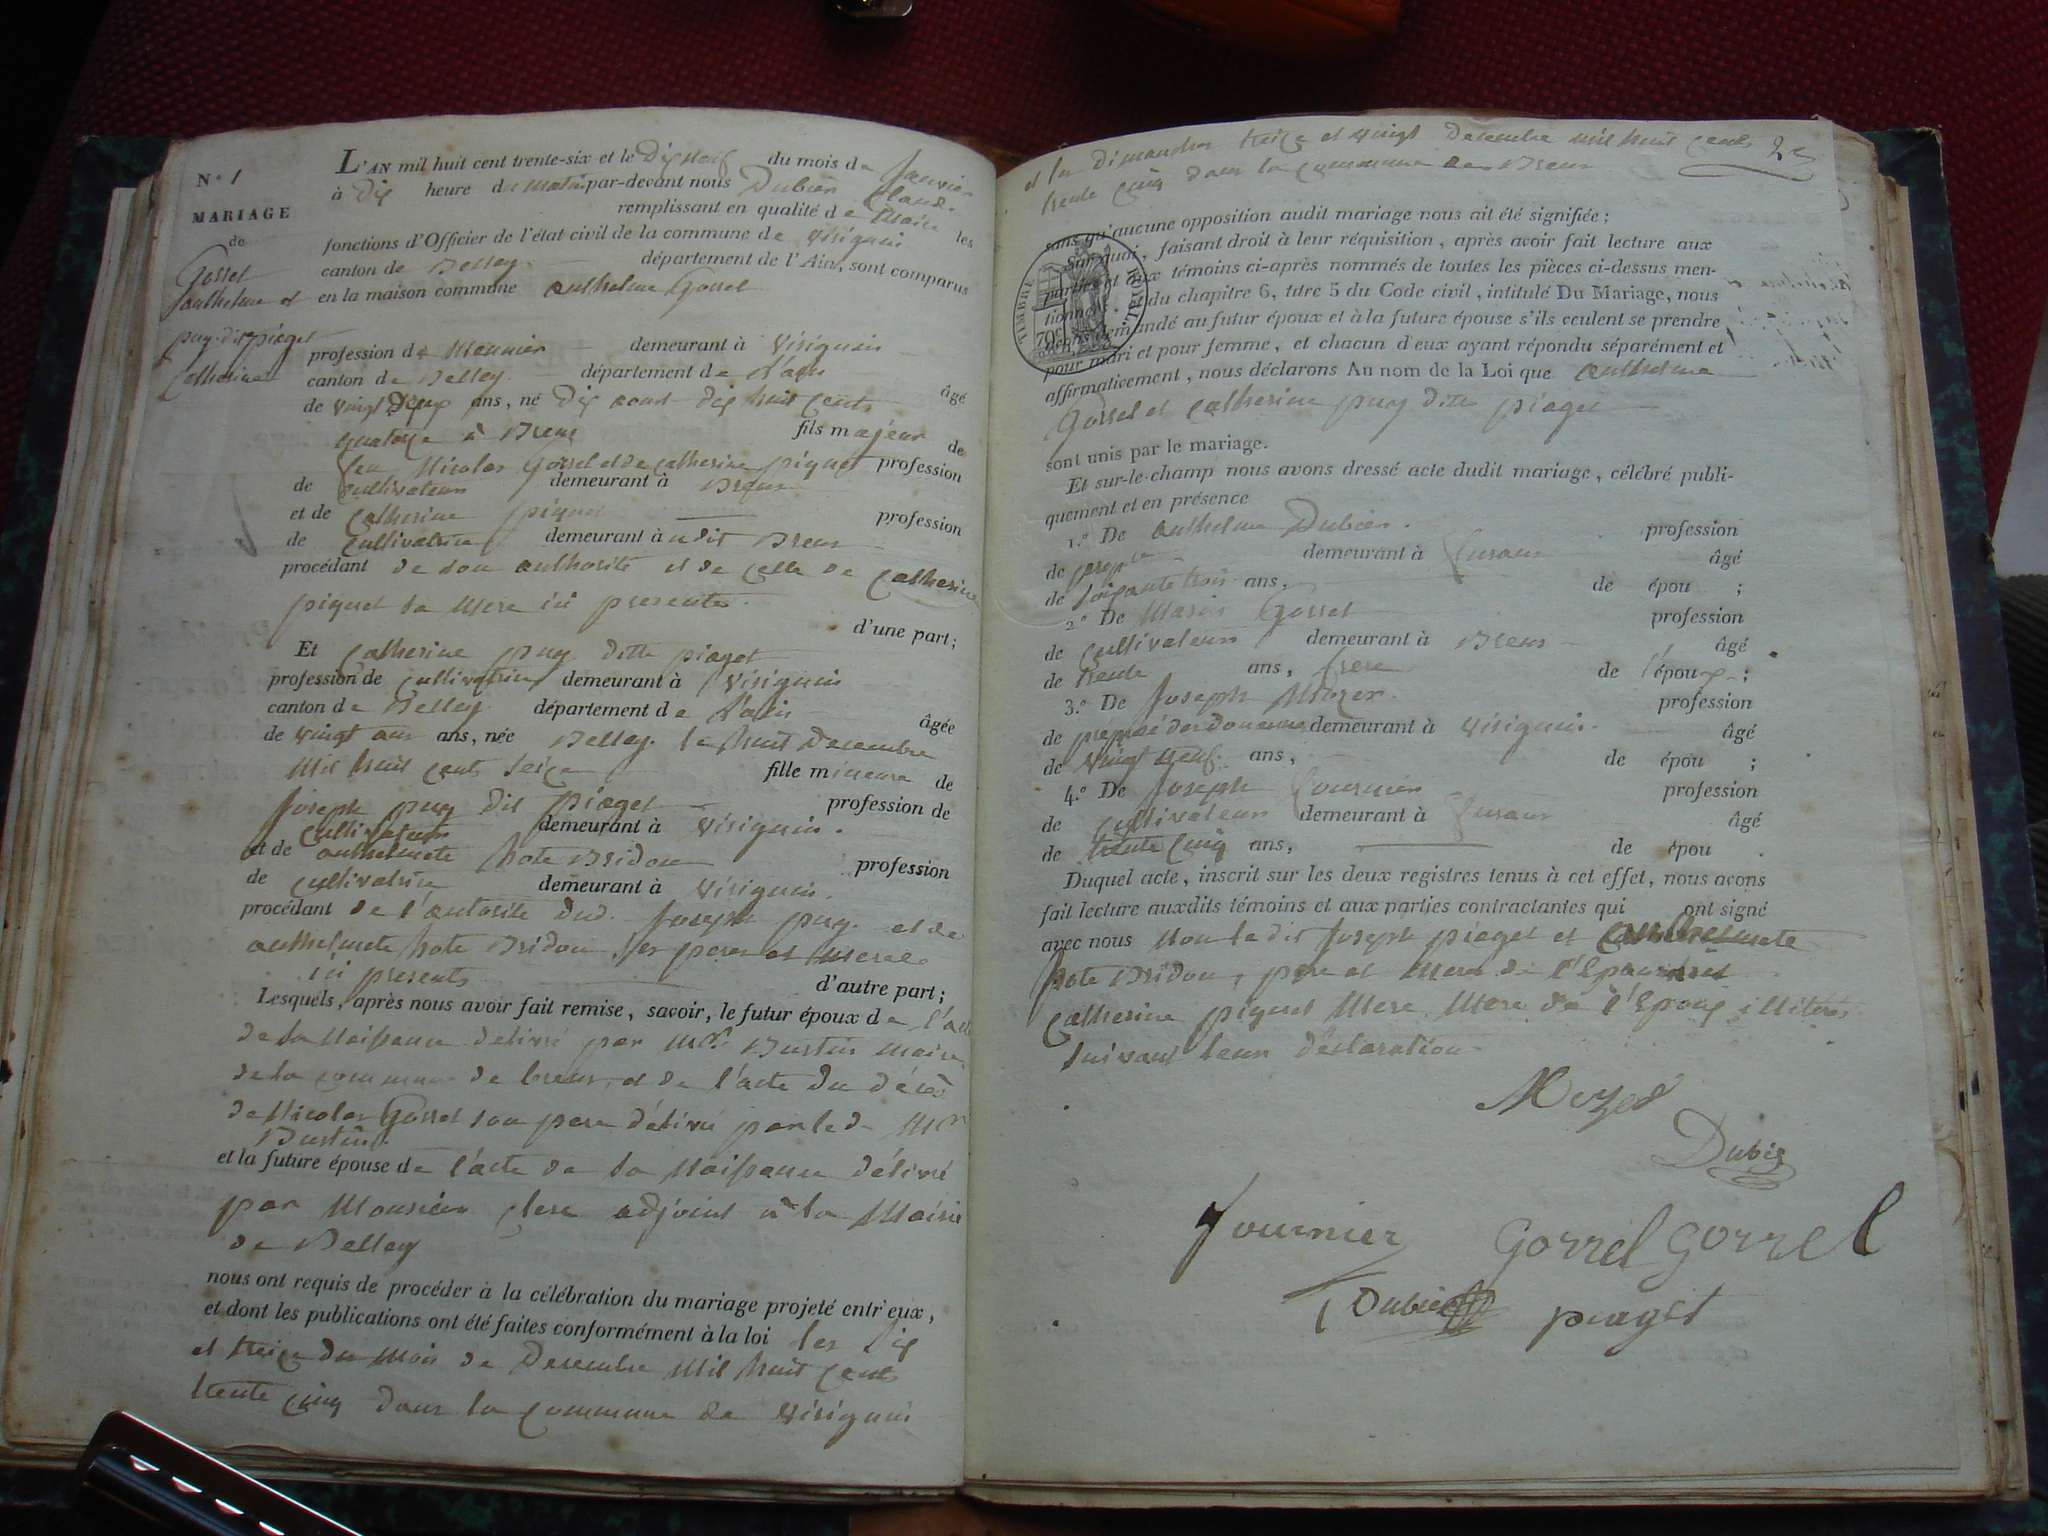 N.° 1
MARIAGE
de
Gorrel
anthelme et
puy dit piaget
Catherine
L'AN mil huit cent trente-six et le Dix neuf du mois de Janvier
à Dix heure du matin par-devant nous Dubien Claude
remplissant en qualité de Maire les
fonctions d'Officier de l'état civil de la commune de Virignin
canton de Belley département de l'Ain, sont comparus
en la maison commune anthelme Gorrel
profession de Meunier demeurant à Virignin
canton de Belley département de l'ain
âgé
de vingt Deux ans, né Dix aout dix huit cents
quatorze à Brens fils majeur de
feu Nicolas Gorrel et de catherine piquet profession
de cultivateur demeurant à Brens
et de catherine piquet profession
de cultivatrice demeurant à udit Brens
procédant de son authorité et de celle de catherine
piquet sa mere ici presente.
d'une part;
Et catherine puy ditte piaget
profession de cultivatrice demeurant à Virignin
canton de Belley département de l'ain
âgée
de vingt ans, née Belley le huit Decembre
mil huit cents seize fille mineure de
Joseph puy dit piaget profession de
cultivateur demeurant à Virignin.
et de anthelmete hote Bridon profession
de cultivatrice demeurant à Virignin.
procédant de l'autorité dud. Joseph puy et de
anthelmete hote Bridon ses peres et meres
ici presents d'autre part;
Lesquels, après nous avoir fait remise, savoir, le futur époux de l'acte
de sa Naissance delivré par Mr. Bustin maire
de la commune de brens, et de l'acte du décès
de Nicolas Gorrel son pere délivré par le d. Mr
Bustin.
et la future épouse de l'acte de sa Naissance délivré
par Monsieur clerc adjoint à la Mairie
de Belley
nous ont requis de procéder à la célébration du mariage projeté entr'eux,
et dont les publications ont été faites conformément à la loi les Dix
et treize du mois de Decembre mil huit cents
trente cinq dans la commune de Virignin
et les Dimanches treize et vingt Decembre mil huit cents
trente cinq dans la commune de Brens
sans qu'aucune opposition audit mariage nous ait été signifiée;
Sur quoi, faisant droit à leur réquisition, après avoir fait lecture aux
parties et aux témoins ci-après nommés de toutes les pièces ci-dessus men-
tionnées, et du chapitre 6, titre 5 du Code civil, intitulé Du Mariage, nous
avons demandé au futur époux et à la future épouse s'ils veulent se prendre
pour mari et pour femme, et chacun d'eux ayant répondu séparément et
affirmativement, nous déclarons Au nom de la Loi que anthelme
Gorrel et catherine puy ditte piaget
sont unis par le mariage.
Et sur-le-champ nous avons dressé acte dudit mariage, célébré publi-
quement et en présence
TIMBRE ROYAL.
70c
1.° De anthelme Dubien. profession
de demeurant à âgé
de soixante trois ans, de épou ;
2.° De Marin Gorrel profession
de cultivateur demeurant à Brens âgé
de trente ans, frere de l'époux ;
3.° De Joseph profession
de préposé des douanes demeurant à Virignin. âgé
de vingt neuf ans, de épou ;
4.° De Joseph fournier profession
de cultivateur demeurant à âgé
de trente cinq ans, de épou .
Duquel acte, inscrit sur les deux registres tenus à cet effet, nous avons
fait lecture auxdits témoins et aux parties contractantes qui ont signé
avec nous Non le dit Joseph piaget et anthelmete
hote Bridon, pere et mere de l'Epouse et
catherine piquet Mere Mere de l'Epoux illiterés
suivant leur déclaration
Dubien
fournier gorrel gorrel
Dubien piaget